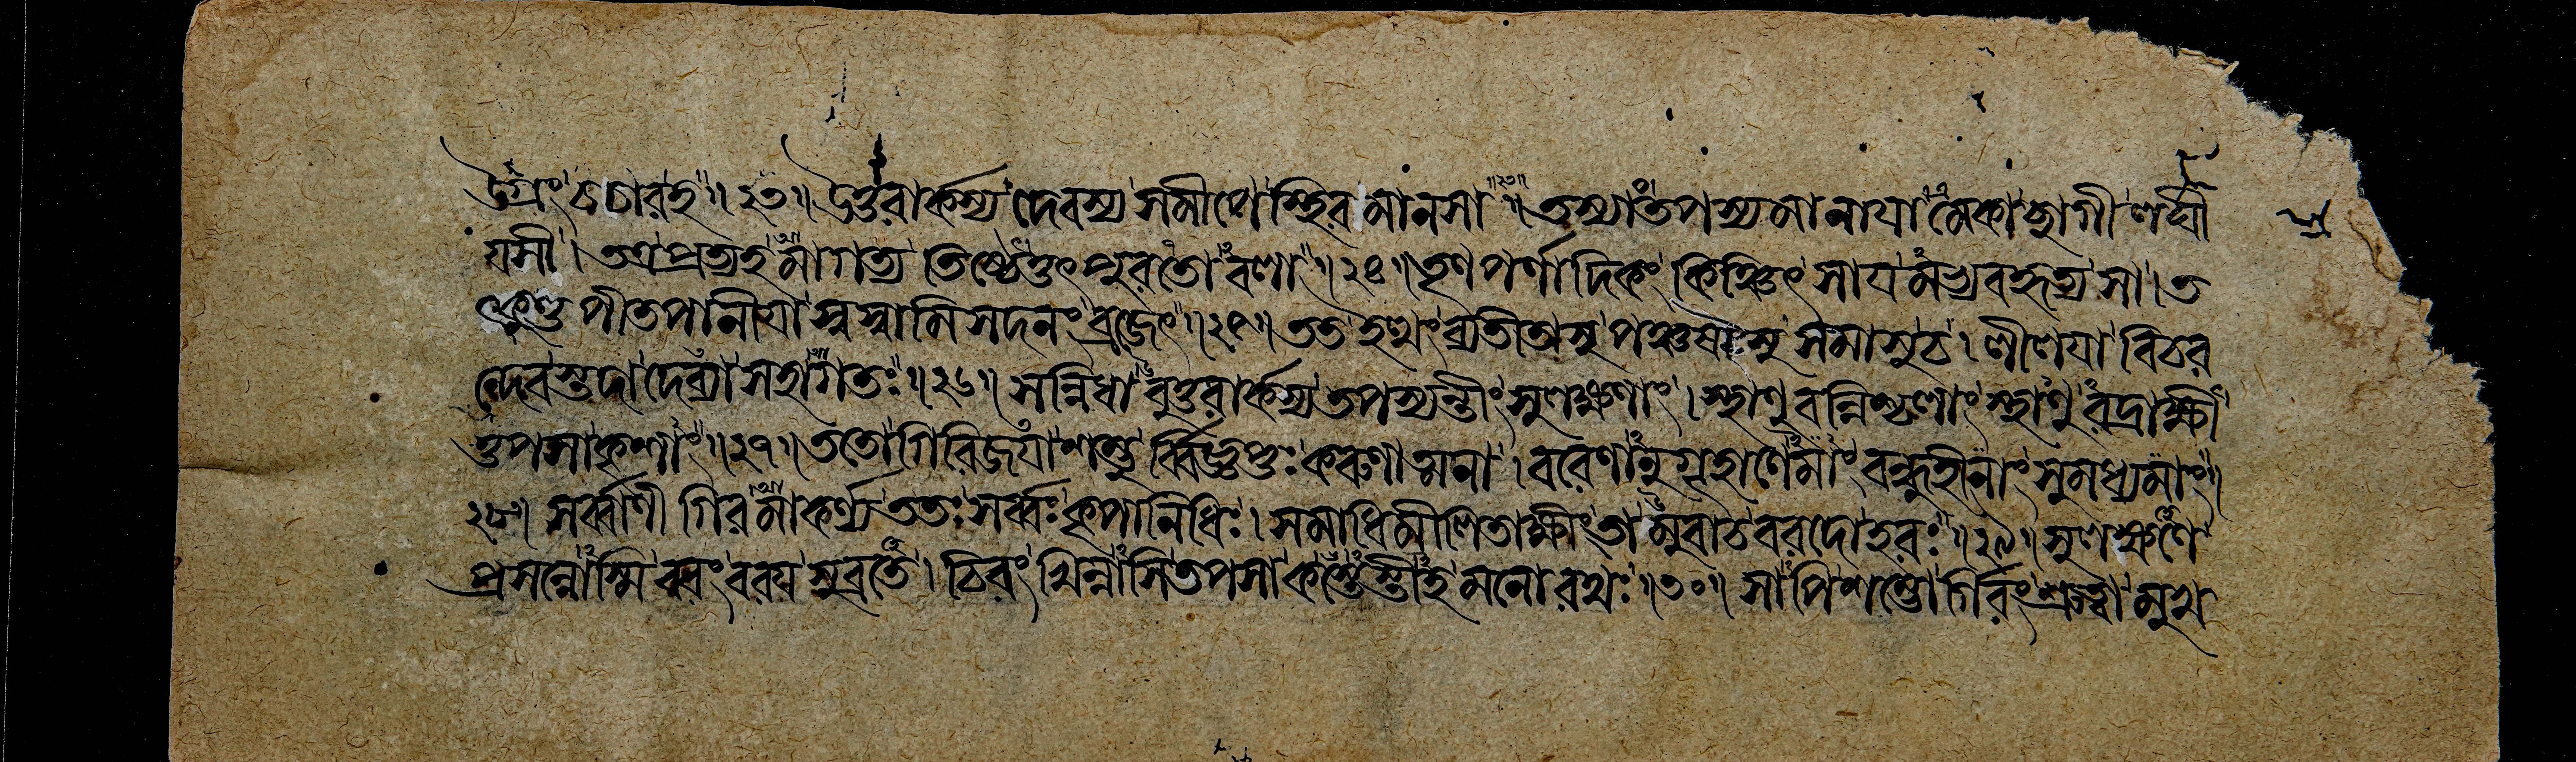 উগ্রং চচারহ ॥ ২৩ ॥ উত্তরার্কস্য দেবস্য সমীপে স্থিরমানসা ॥ তস্যাং তপস্যমানাযামেকা ছাগী লঘী
যসী । তত্র প্রত্যহমাগত্য তিষ্ঠেত্তৎপুরতোঽবলা ॥ ২৪ ॥ তৃণপর্ণাদিকং কিঞ্চিৎ সাযমভ্যবহৃত্য সা । ত
ৎকুণ্ডপীতপানীযা স্বস্বামিসদনং ব্রজেৎ ॥ ২৫ ॥ তত ইত্থং ব্যতীতাসু পঞ্চষাসু সমাসু চ । লীলযা বিচর
ন্দেবস্তদা দেব্যা সহাগতঃ ॥ ২৬ ॥ সন্নিধাবুত্তরার্কস্য তপস্যন্তীং সুলক্ষণাং । স্থাণুবন্নিশ্চলাং স্থাণুরদ্রাক্ষী
ত্তপসা কৃশাং ॥ ২৭ ॥ ততো গিরিজযা শম্ভুর্ব্বিজ্ঞপ্তঃ করুণাত্মনা । বরেণানুগৃহাণেমাং বন্ধুহীনাং সুমধ্যমাং ॥
২৮ ॥ সর্ব্বাণী গিরমাকর্ণ্য ততঃ সর্ব্বঃ কৃপানিধিঃ । সমাধিমীলিতাক্ষীং তামুবাচ বরদো হরঃ ॥ ২৯ ॥ সুলক্ষণে
প্রসন্নোস্মি বরং বরয সুব্রতে । চিরং খিন্নাসি তপসা কস্তেঽস্তীহ মনোরথঃ ॥ ৩০ ॥ সাপি শম্ভোর্গিরং শ্রুত্বা মুখ